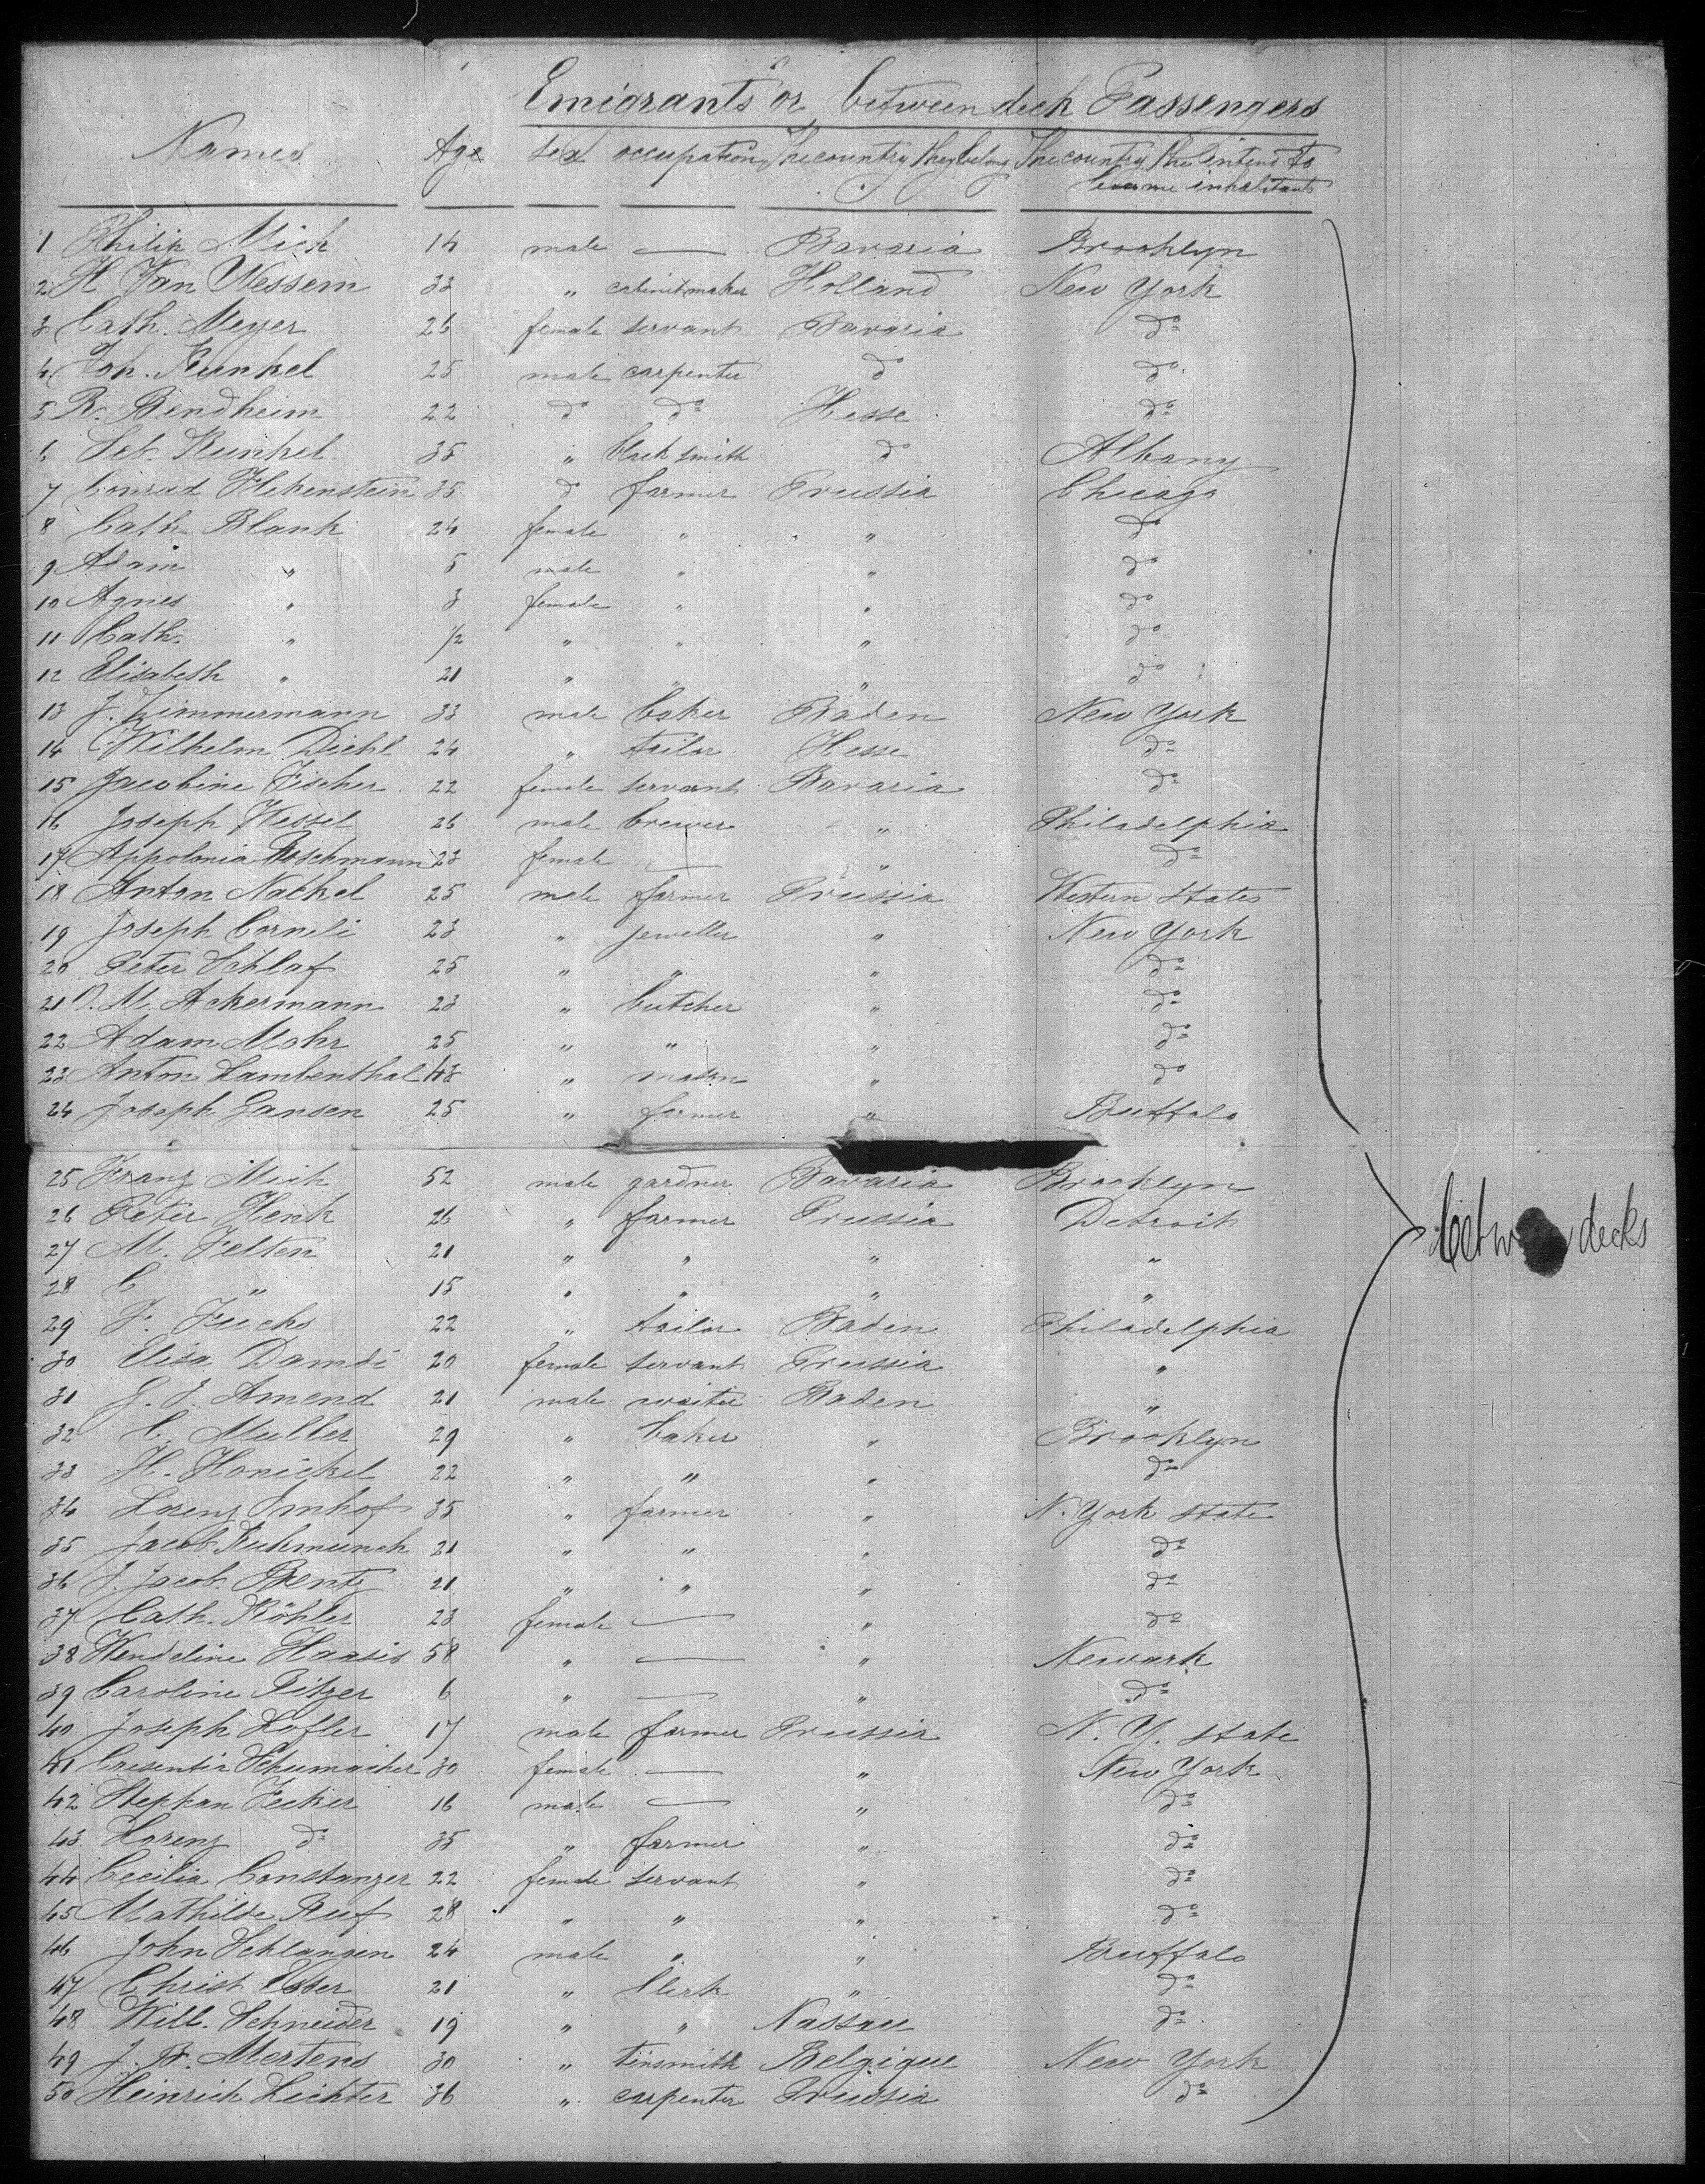 Emigrants or between deck Passengers
Names Age sex occupation The country they belong The country the intend to
become inhabitants
1 Philip Mich 14 male — Bavaria Brooklyn
2 H Van Wessem 33 " cabinetmaker Holland New York
3 Cath. Meyer 26 female servant Bavaria do
4 Joh. Kunkel 25 male carpenter do do
5 B. Bendheim 22 do do Hesse do
6 Seb. Kunkel 35 " black smith do Albany
7 Conrad 35 do farmer Prussia Chicago
8 Cath. Blank 24 female " " do
9 Adam " 5 male " " do
10 Agnes " 3 female " " do
11 Cath. " 1/2 " " " do
12 Elisabeth " 21 " " " do
13 J. Zimmermann 33 male baker Baden New York
14 Wilhelm Diehl 24 " tailor Hesse do
15 Jacobine Fischer 22 female servant Bavaria do
16 Joseph Wessel 26 male brewer " Philadelphia
17 Appolonia 23 female — " do
18 Anton Nathel 25 male farmer Prussia Western States
19 Joseph Corneli 23 " jeweller " New York
20 Peter Schlaf 25 " " " do
21 M. Ackermann 23 " butcher " do
22 Adam Mohr 25 " " " do
23 Anton Lambenthal 48 " mason " do
24 Joseph Gansen 25 " farmer " Buffalo
25 Franz Mich 52 male gardner Bavaria Brooklyn
26 Peter Henk 26 " farmer Prussia Detroit
27 M. Felten 21 " " " "
between decks
28 C " 15 " " " "
29 F. Fuchs 22 " tailor Baden Philadelphia
30 Elisa Damdé 20 female servant Prussia "
31 G. J. Amend 21 male waiter Baden "
32 C. Muller 29 " baker " Brooklyn
33 H. Honickel 22 " " " do
34 Lorenz Imhof 35 " farmer " N. York state
35 Jacob Kuhmunch 21 " " " do
36 J. Jacob. Bentz 21 " " " do
37 Cath. Köhler 23 female — " do
38 Wendeline Haasis 58 " — " Newark
39 Caroline Pitzer 6 " — " do
40 Joseph Lofler 17 male farmer Prussia N. Y. state
41 Cresentia Schumacher 30 female — " New York
42 Stephan Fecker 16 male — " do
43 Lorenz do 35 " farmer " do
44 Cecilia Constanzer 22 female servant " do
45 Mathilde Ruf 28 " " " do
46 John Schlangen 24 male " " Buffalo
47 Christ Esser 21 " Clerk " do
48 Will. Schneider 19 " " Nassau do
49 J. B. Mertens 30 " tinsmith Belgique New York
50 Heinrich Lichter 36 " carpenter Prussia do